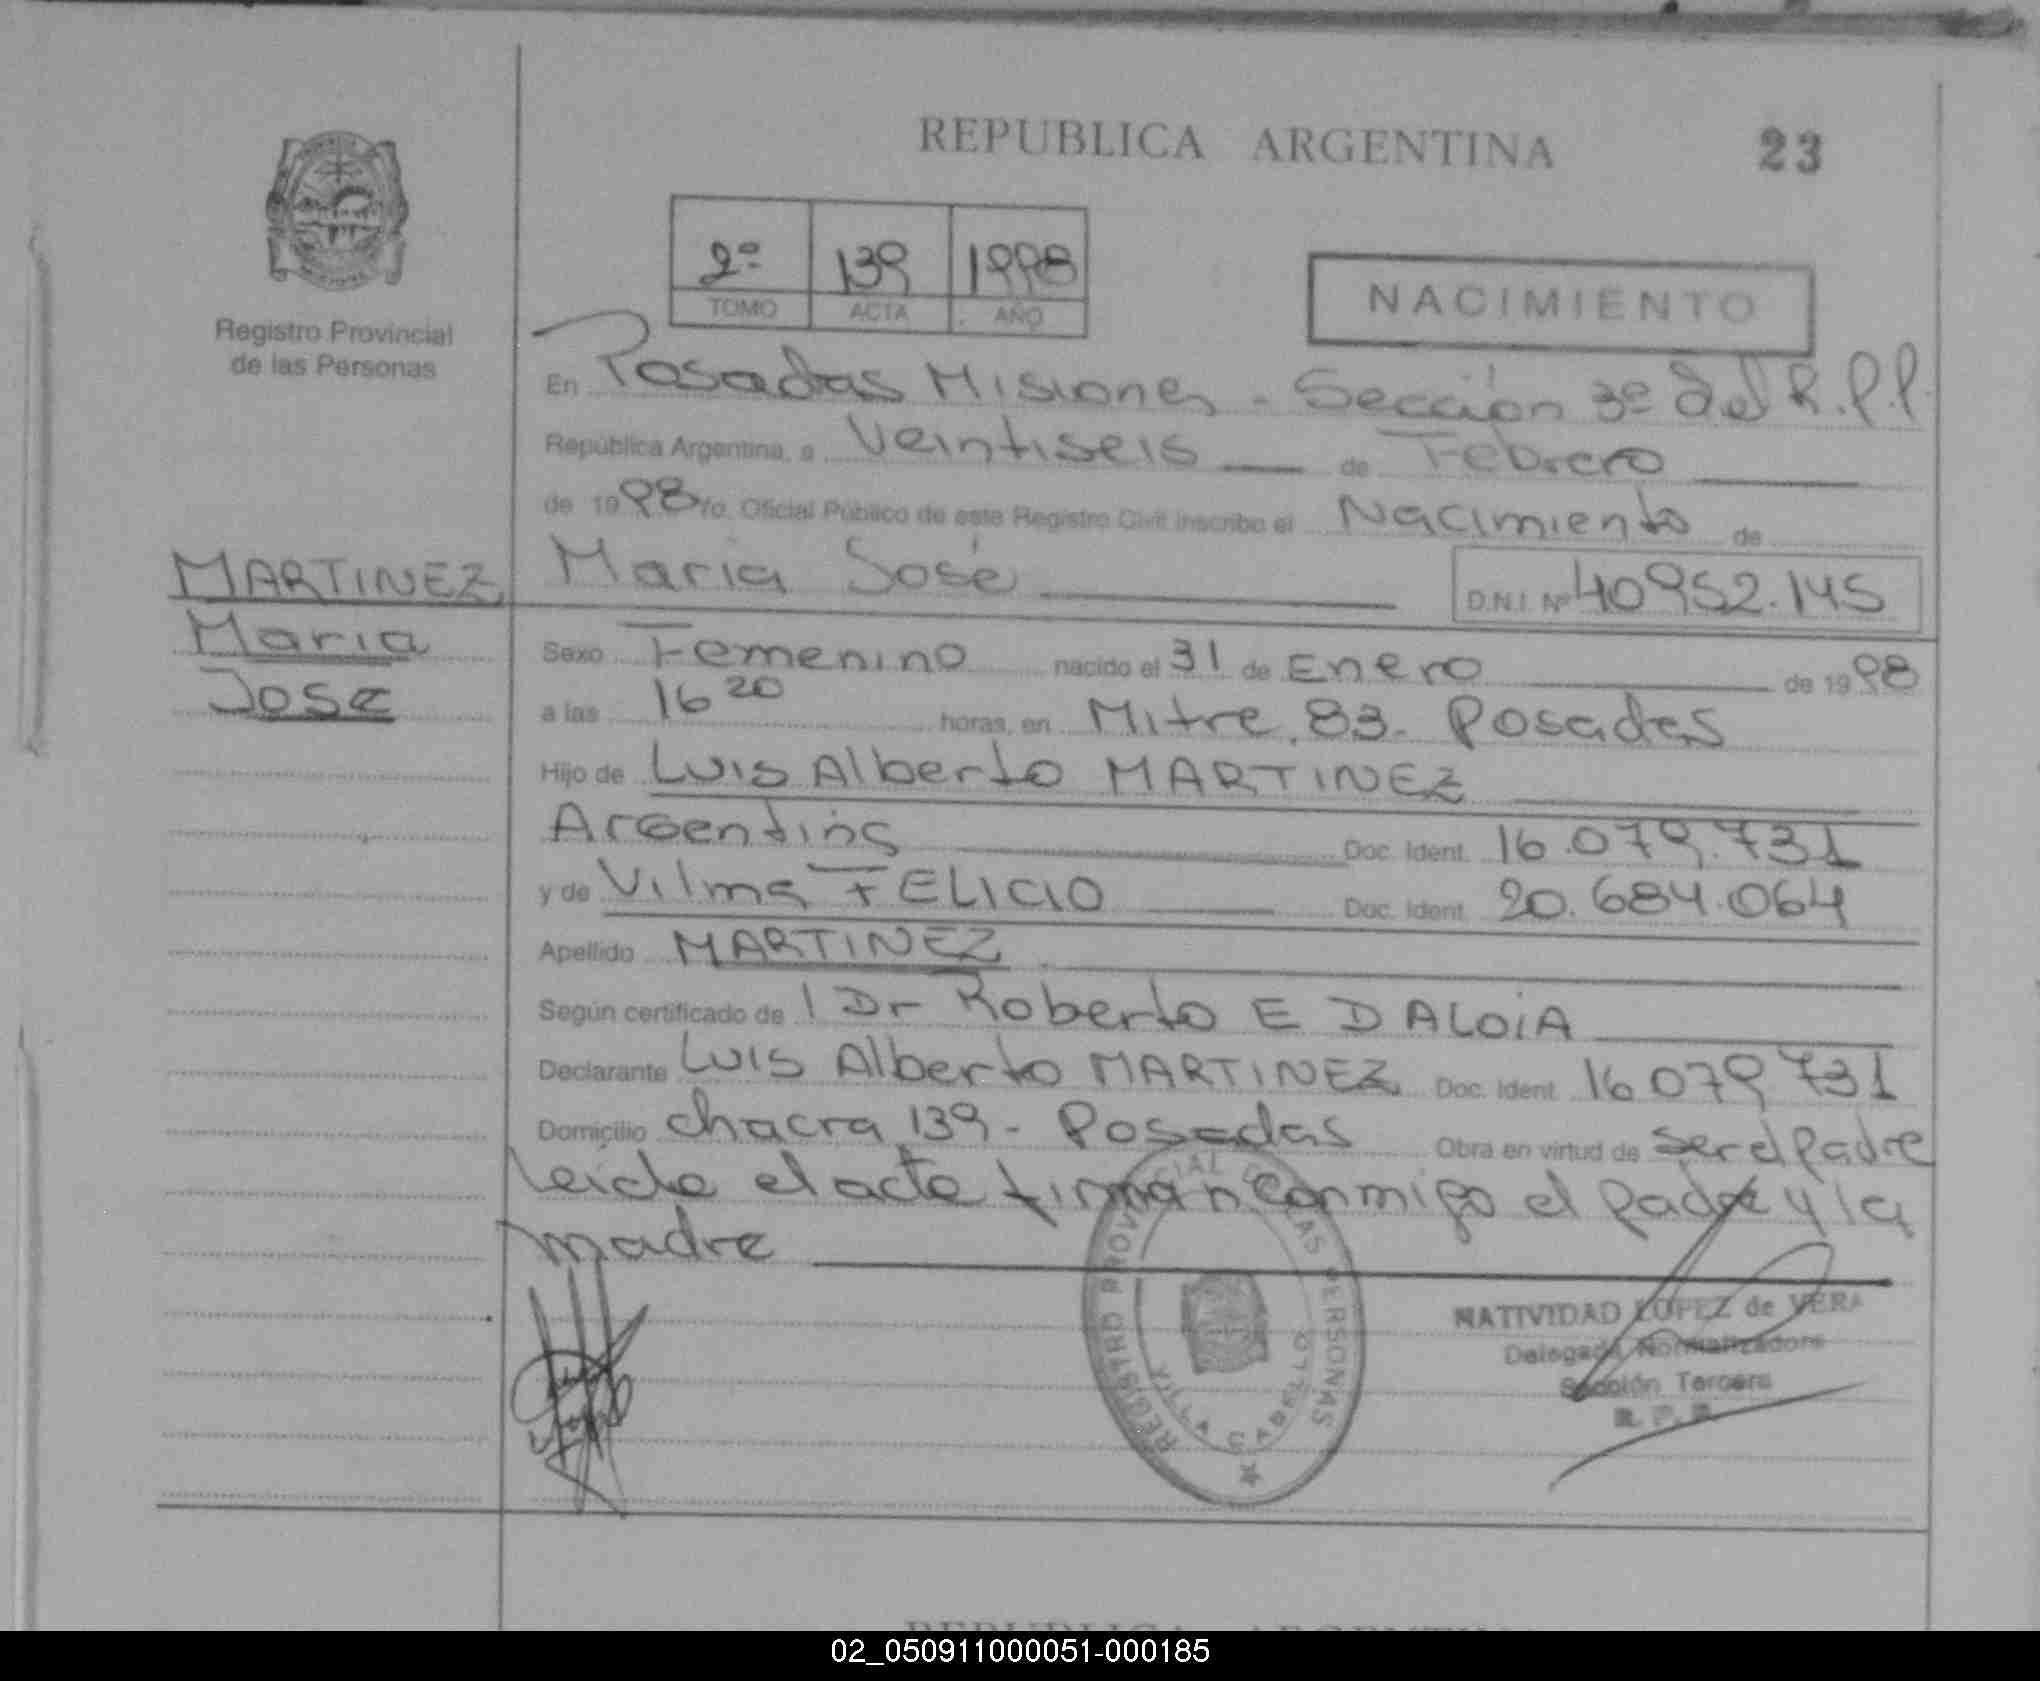 REPUBLICA ARGENTINA
23
Registro Provincial
de las Personas
2º 139 1998
TOMO ACTA AÑO
NACIMIENTO
En Posadas Misiones - Sección 3º del R.P.P.
República Argentina, a Veintiseis de Febrero
de 1998 Yo. Oficial Público de este Registro Civil inscribo el Nacimiento de
MARTINEZ
Maria
Jose
Maria José D.N.I. Nº 40952.145
Sexo Femenino nacido el 31 de Enero de 1998
a las 16 20 horas, en Mitre 83. Posadas
Hijo de Luis Alberto MARTINEZ
Argentina Doc. Ident. 16.079.731
y de Vilma FELICIO Doc. Ident. 20.684.064
Apellido MARTINEZ
Según certificado de l Dr Roberto E DALOiA
Declarante Luis Alberto MARTINEZ Doc. Ident. 16079731
Domicilio chacra 139 - Posadas Obra en virtud de ser el padre
leida el acta firman conmigo el padre y la
madre
REGISTRO PROVINCIAL DE LAS PERSONAS
VILLA CABELLO
NATIVIDAD LOPEZ de VERA
Delegada Normalizadora
Sección Tercera
R. P. P.
REPUBLICA ARGENTINA
02_050911000051-000185